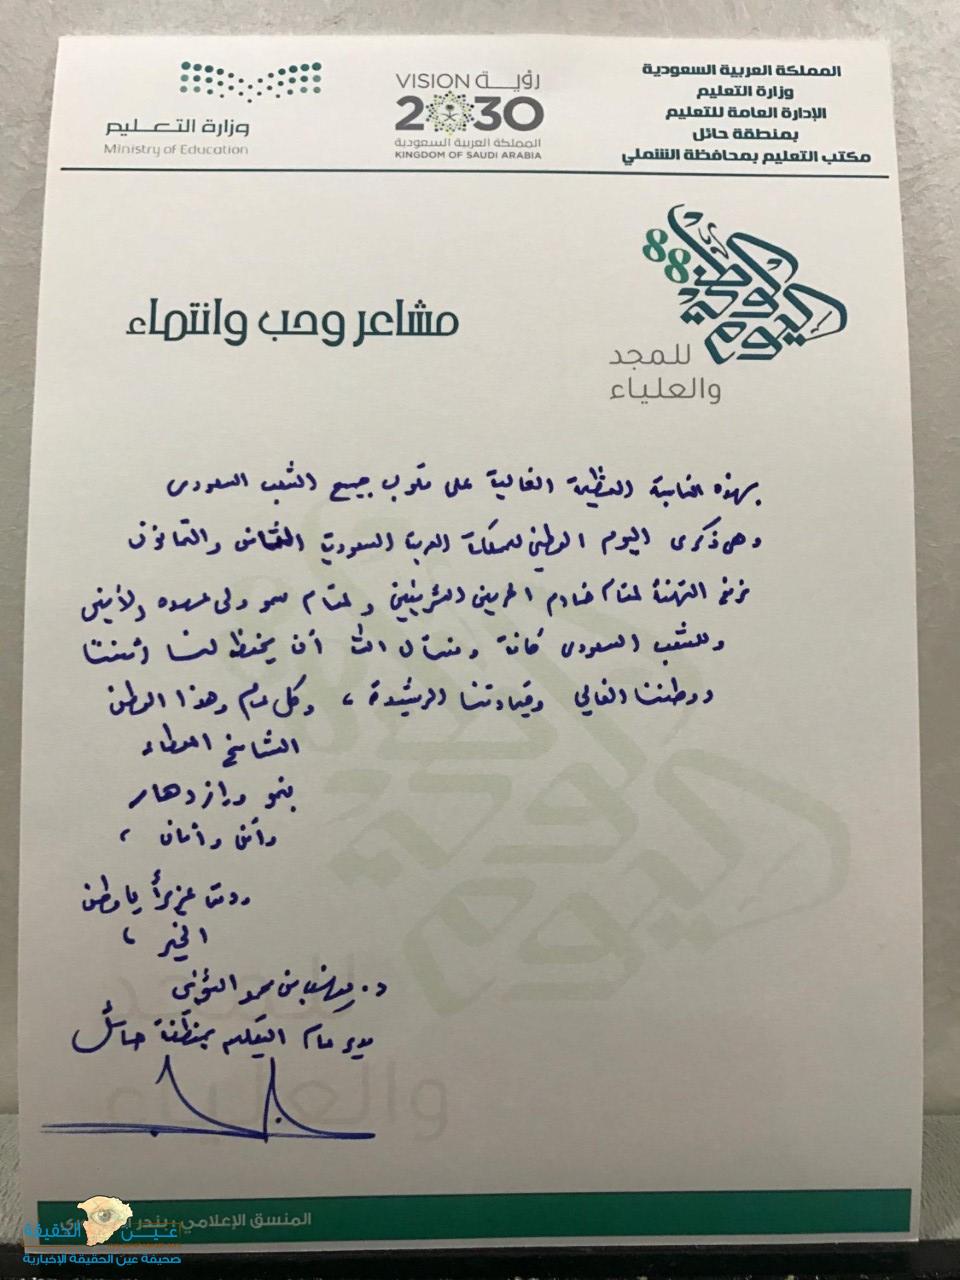 المملكة العربية السعودية
وزارة التعليم
الإدارة العامة للتعليم
بمنطقة حائل
مكتب التعليم بمحافظة الشملي
رؤيـــة VISION
2030
المملكة العربية السعودية
KINGDOM OF SAUDI ARABIA
وزارة التعـــليم
Ministry of Education
اليوم الوطني 88
للمجد
والعلياء
مشاعر وحب وانتماء
بهذه المناسبة العظيمة الغالية على قلوب جميع الشعب السعودي
وهي ذكرى اليوم الوطني للمملكة العربية السعودية الثامن والثمانون
نرفع التهنئة لمقام خادم الحرمين الشريفين ولمقام سمو ولي عهده الأمين
وللشعب السعودي كافة ونسأل الله أن يحفظ لنا أمننا
ووطننا الغالي وقيادتنا الرشيدة ، وكل عام وهذا الوطن
الشامخ المعطاء
بنمو وازدهار
وأمن وأمان ،
ودمت عزيزاً يا وطن
الخير ،
د. بن محمد
مدير عام التعليم بمنطقة حائل
للمجد
والعلياء
المنسق الإعلامي : بندر
عين الحقيقة
صحيفة عين الحقيقة الإخبارية